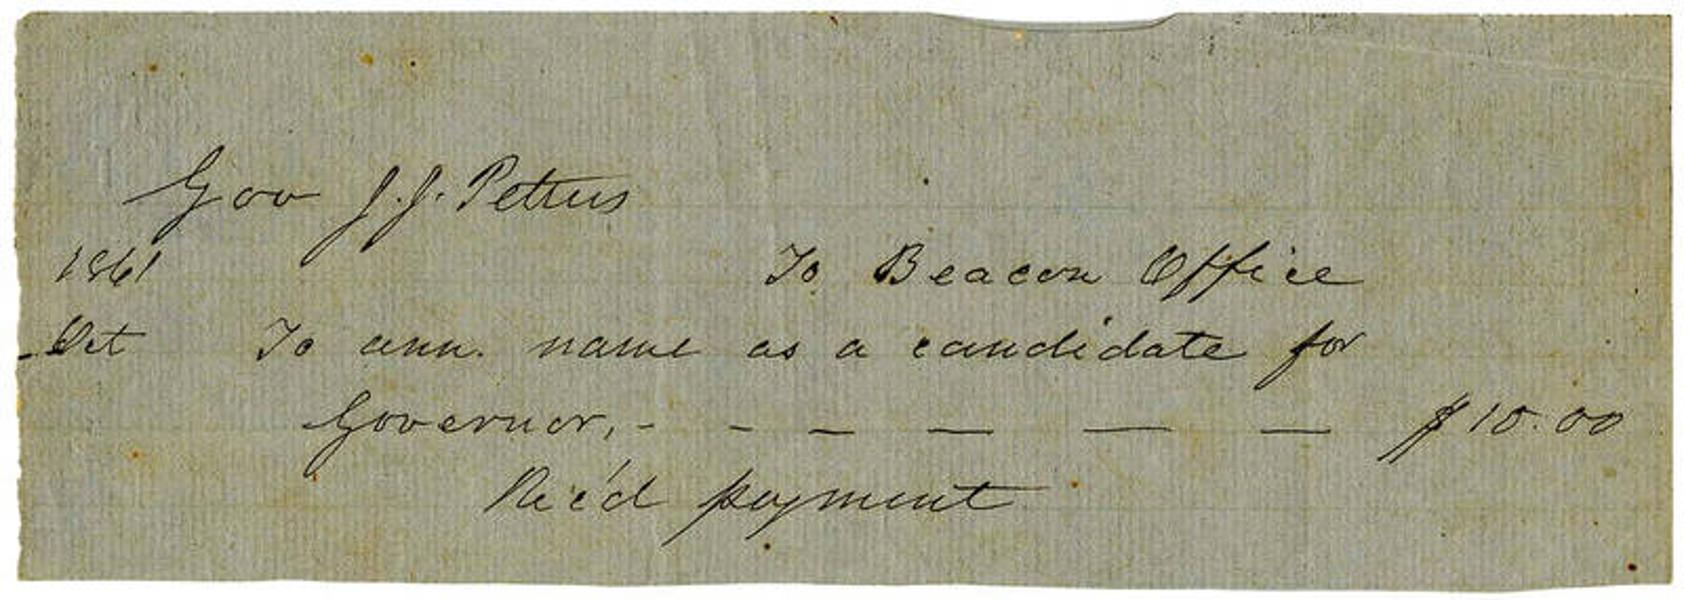 Gov J. J. Pettus
1861 To Beacon Office
Oct To ann. name as a candidate for
Governor, - - - — — — $10.00
Rec'd payment